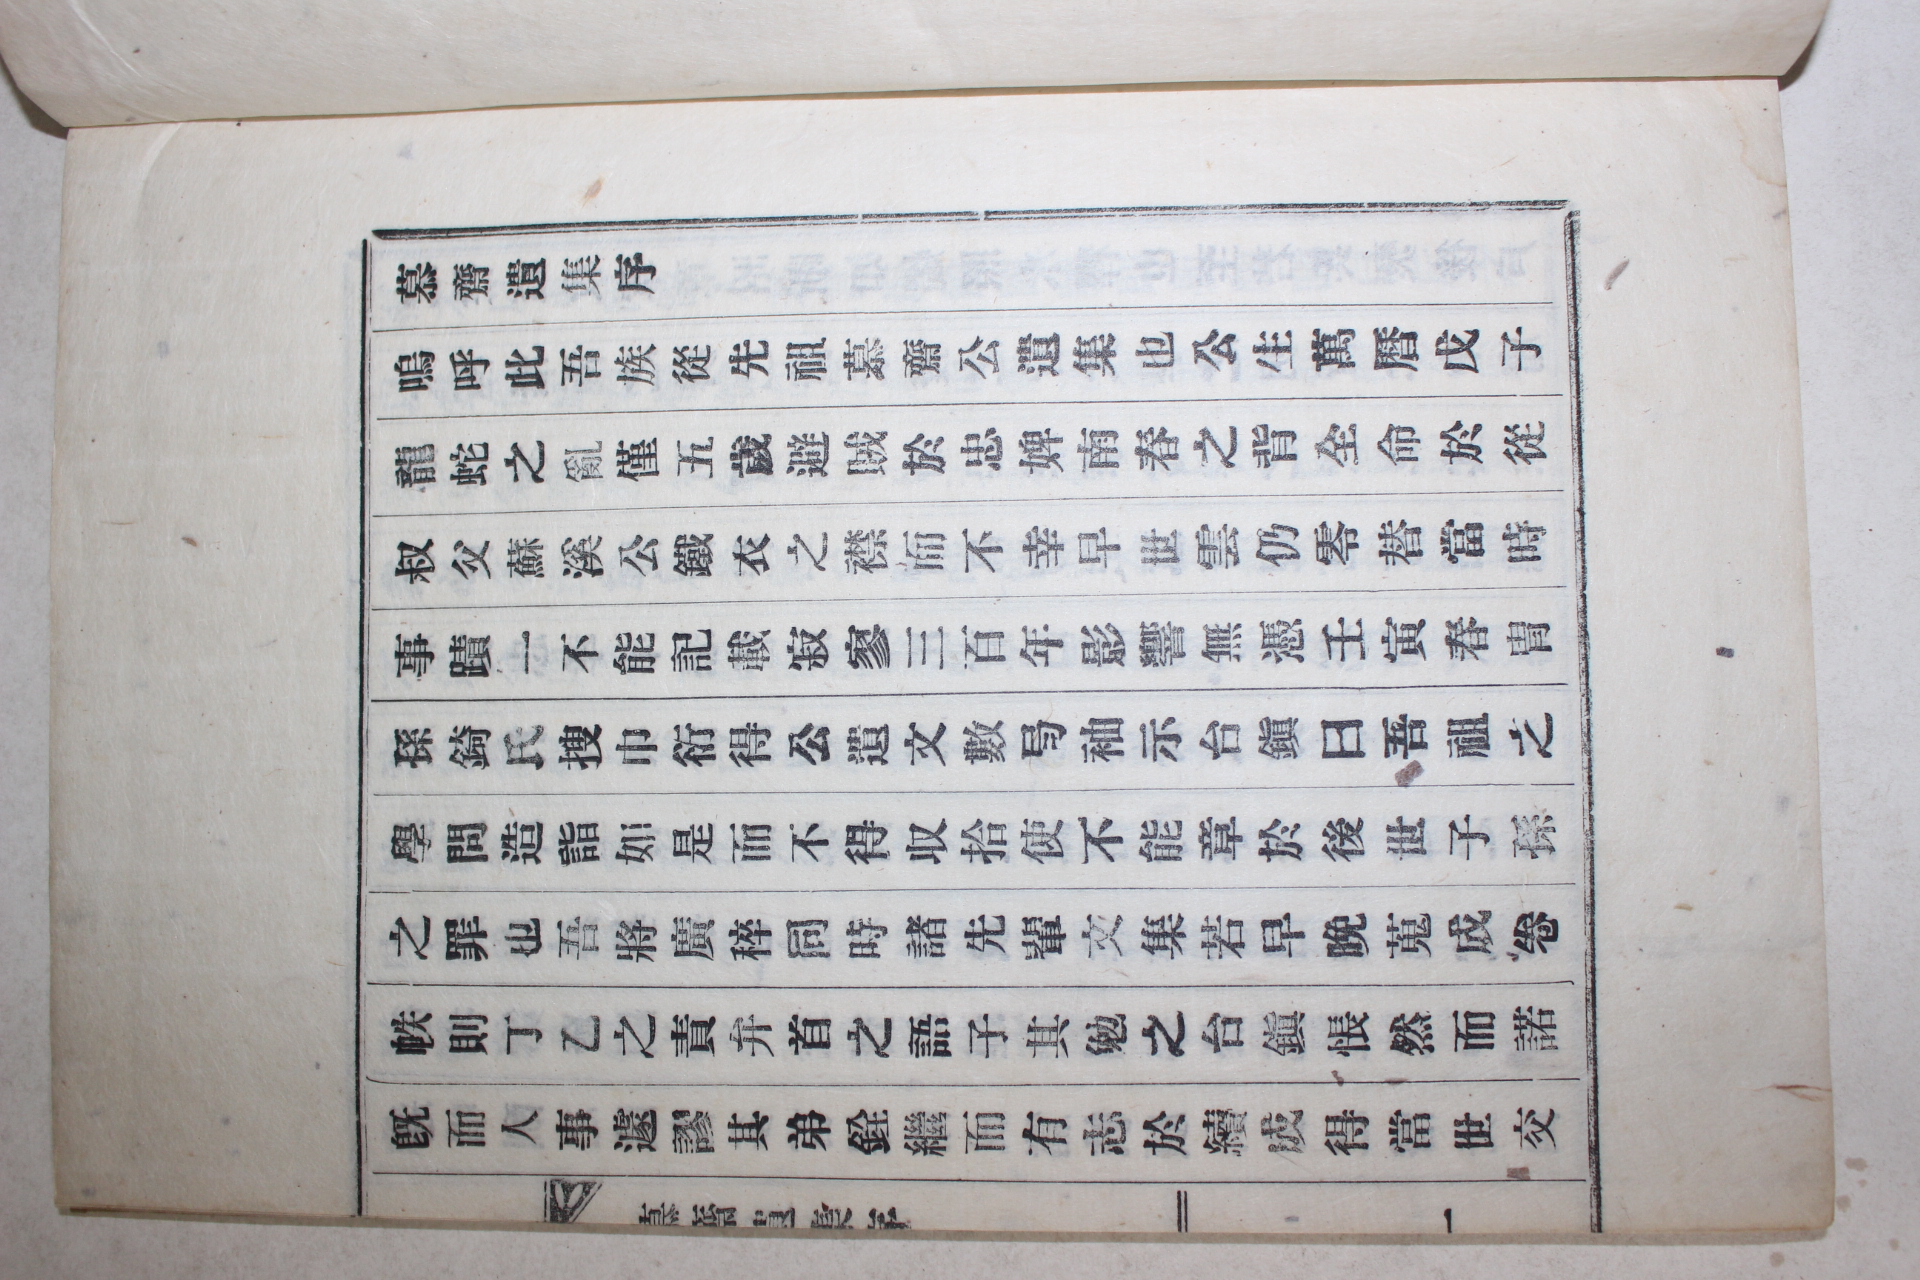 慕齋遺集序
嗚呼此吾族從先祖慕齋公遺集也公生萬曆戊子
龍蛇之亂僅五歲避賊於忠婢南春之背全命於從
叔父蘇溪公鐵衣之襟而不幸早世雲仍零替當時
事蹟一不能記載寂寥三百年影響無憑壬寅春冑
孫錡氏搜巾衍得公遺文數局袖示台鎭曰吾祖之
學問造詣如是而不得収拾使不能章於後世子孫
之罪也吾將廣稡同時諸先輩文集若早晩蒐成卷
帙則丁乙之責弁首之語子其勉之台鎭悵然而諾
旣而人事遽謬其弟銓繼而有志於續成得當世交
慕齋遺集序
一